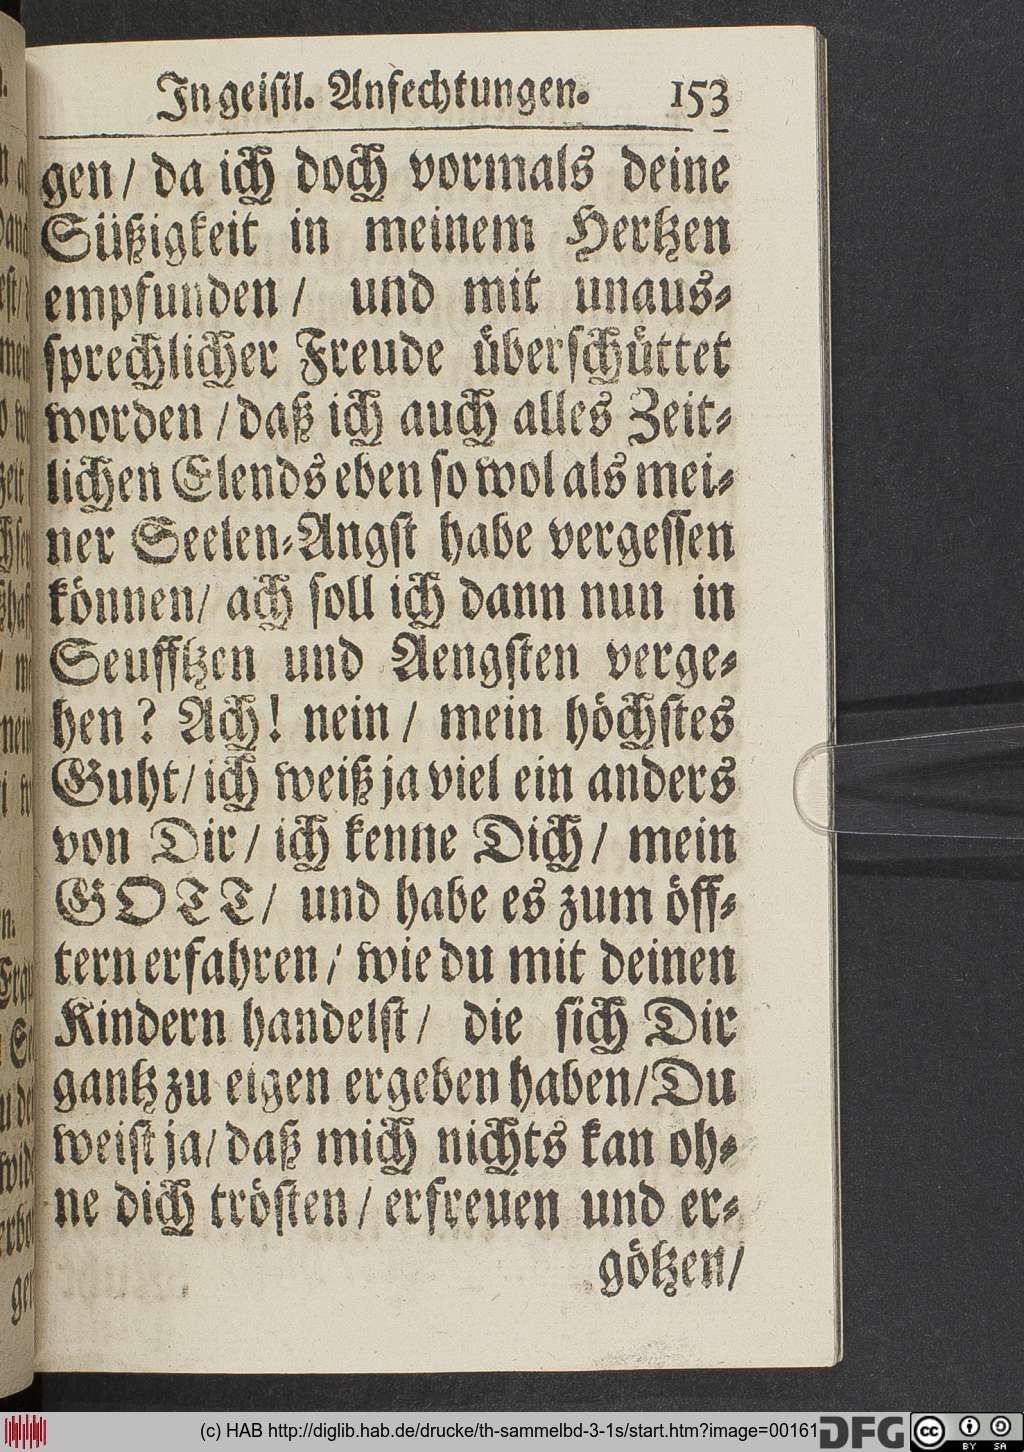 In geistl. Anfechtungen. 153
gen / da ich doch vormals deine
Süßigkeit in meinem Hertzen
empfunden / und mit unaus-
sprechlicher Freude überschüttet
worden / daß ich auch alles Zeit-
lichen Elends eben so wol als mei-
ner Seelen-Angst habe vergessen
können / ach soll ich dann nun in
Seufftzen und Aengsten verge-
hen? Ach! nein / mein höchstes
Guht / ich weiß ja viel ein anders
von Dir / ich kenne Dich / mein
GOTT / und habe es zum öff-
tern erfahren / wie du mit deinen
Kindern handelst / die sich Dir
gantz zu eigen ergeben haben / Du
weist ja / daß mich nichts kan oh-
ne dich trösten / erfreuen und er-
götzen /
(c) HAB http://diglib.hab.de/drucke/th-sammelbd-3-1s/start.htm?image=00161
DFG
cc BY SA